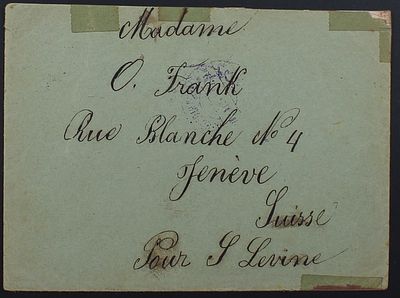 Madame
O. Frank
Rue Blanche No 4
Jenève
Suisse
Pour S Levine